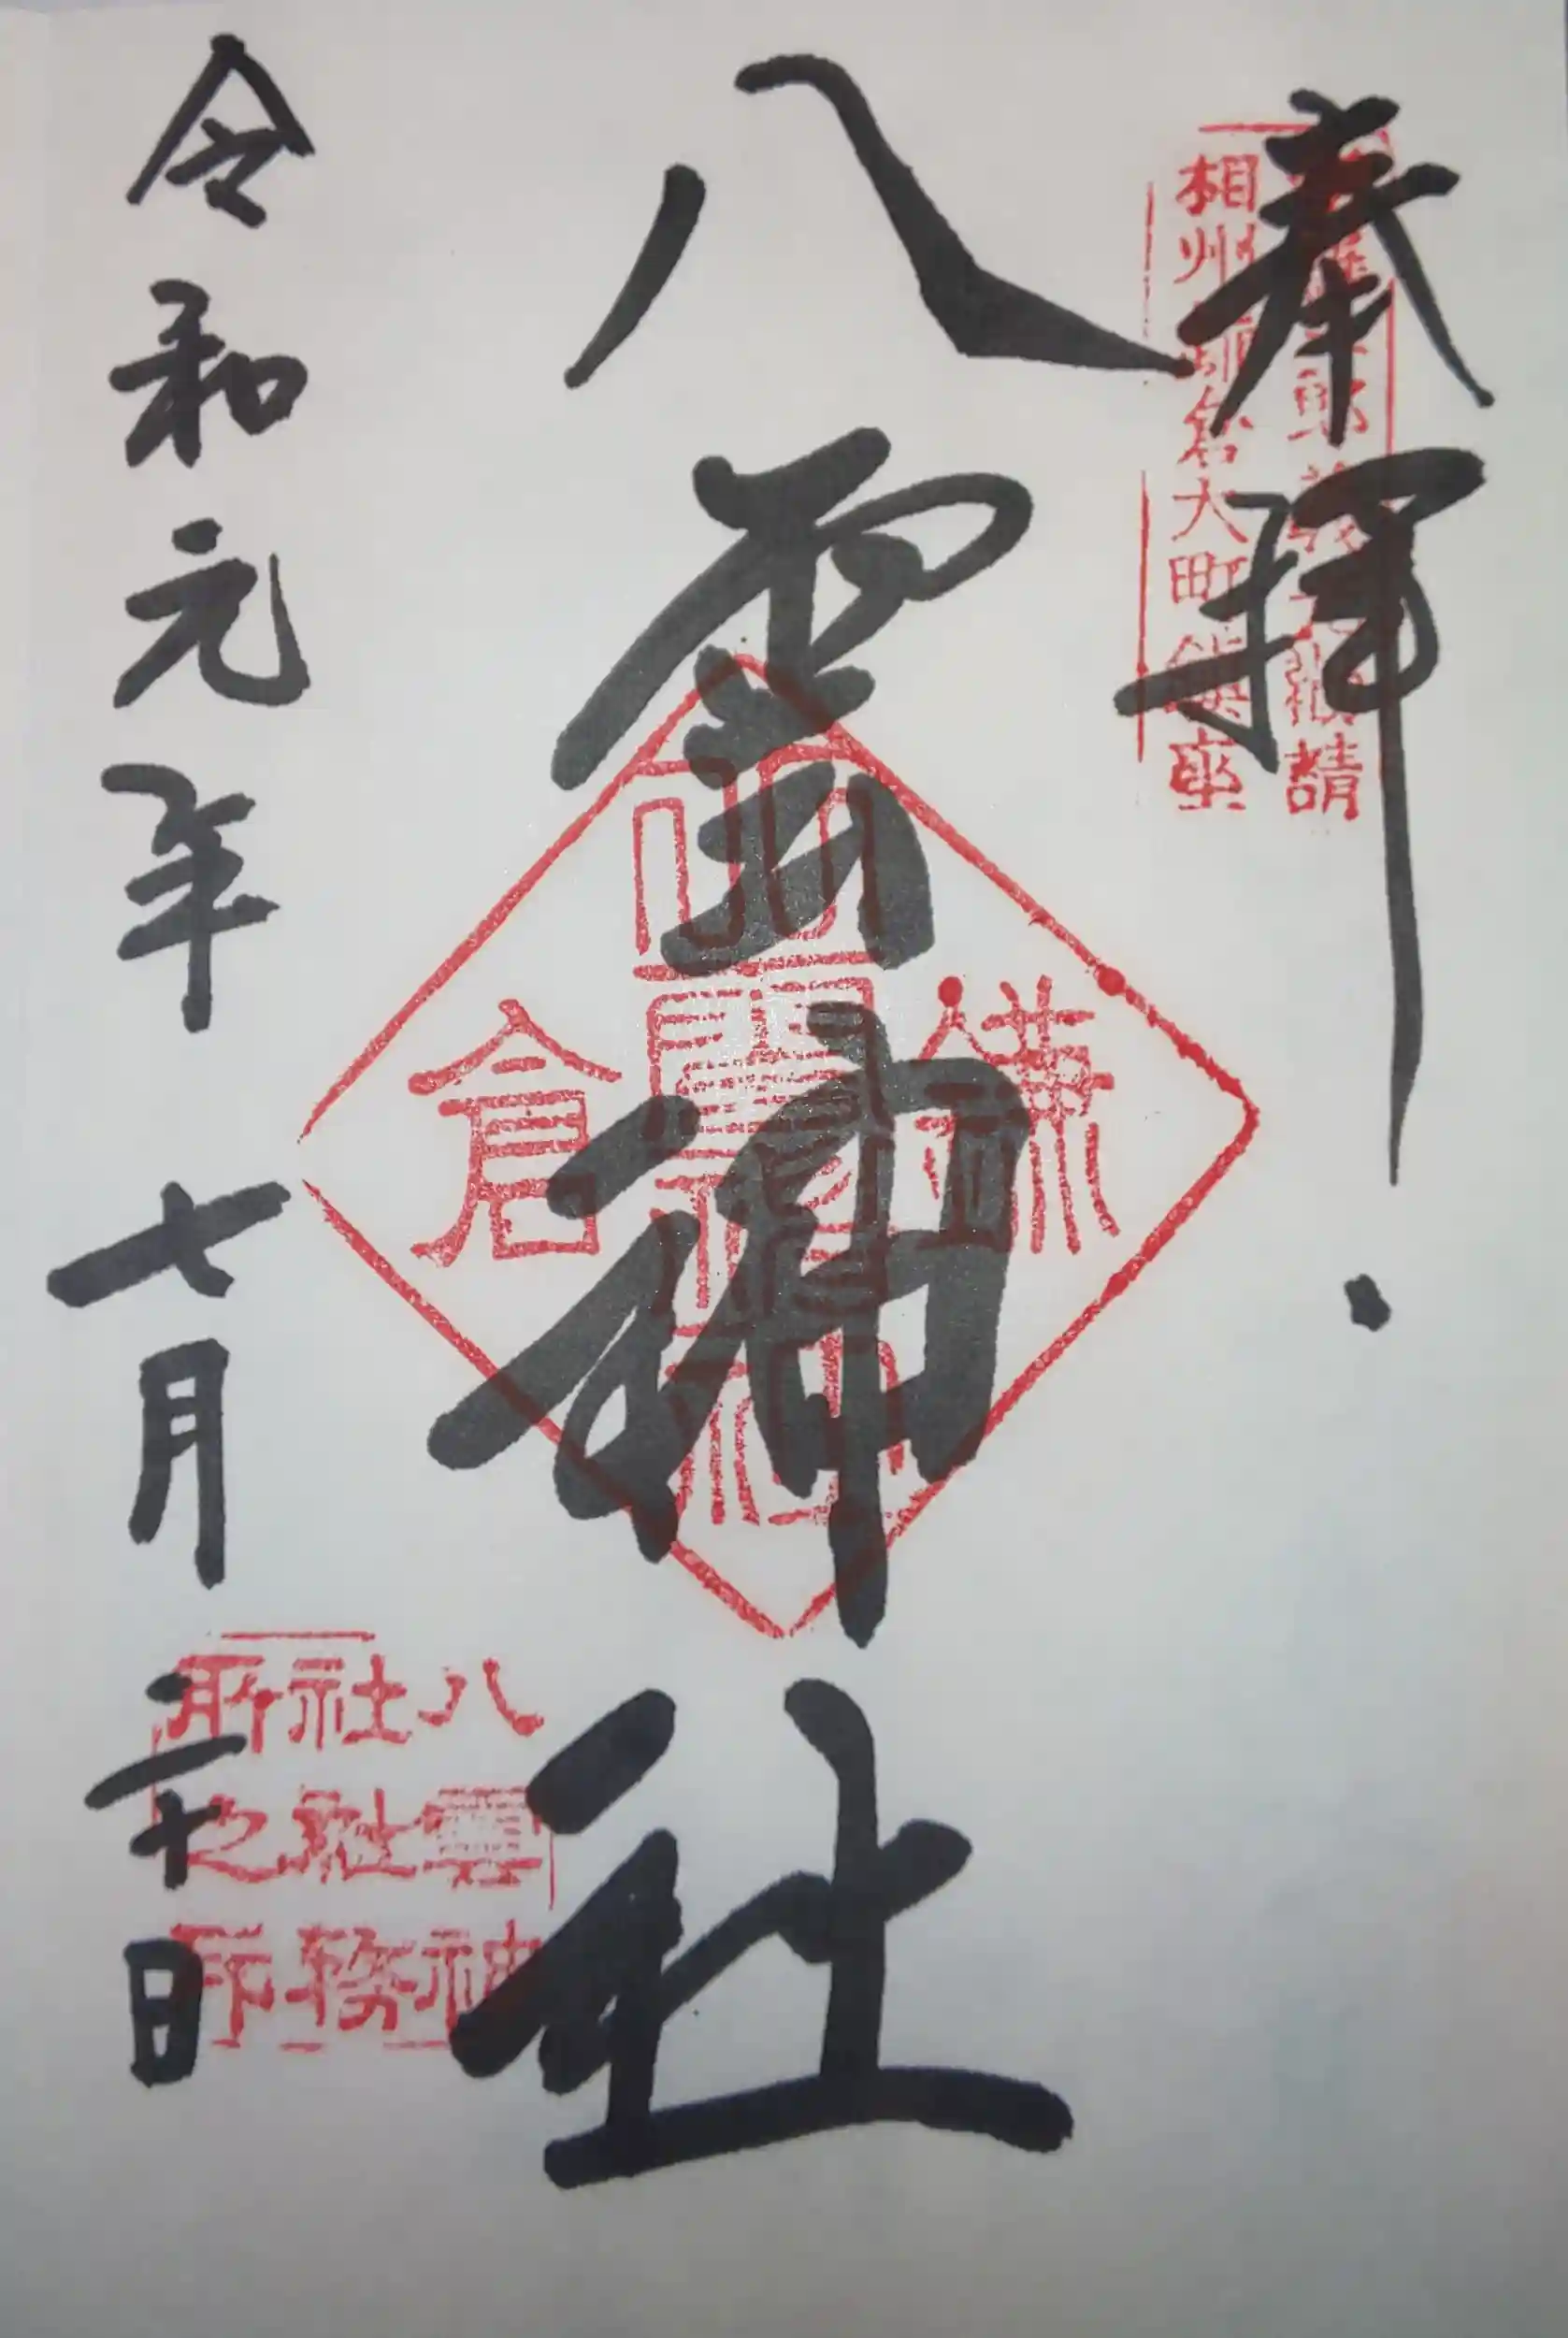 奉拝
相州鎌倉大町鎮座
八雲神社
鎌倉
八雲神社
八雲神社社務所之印
令和元年 七月 二十日